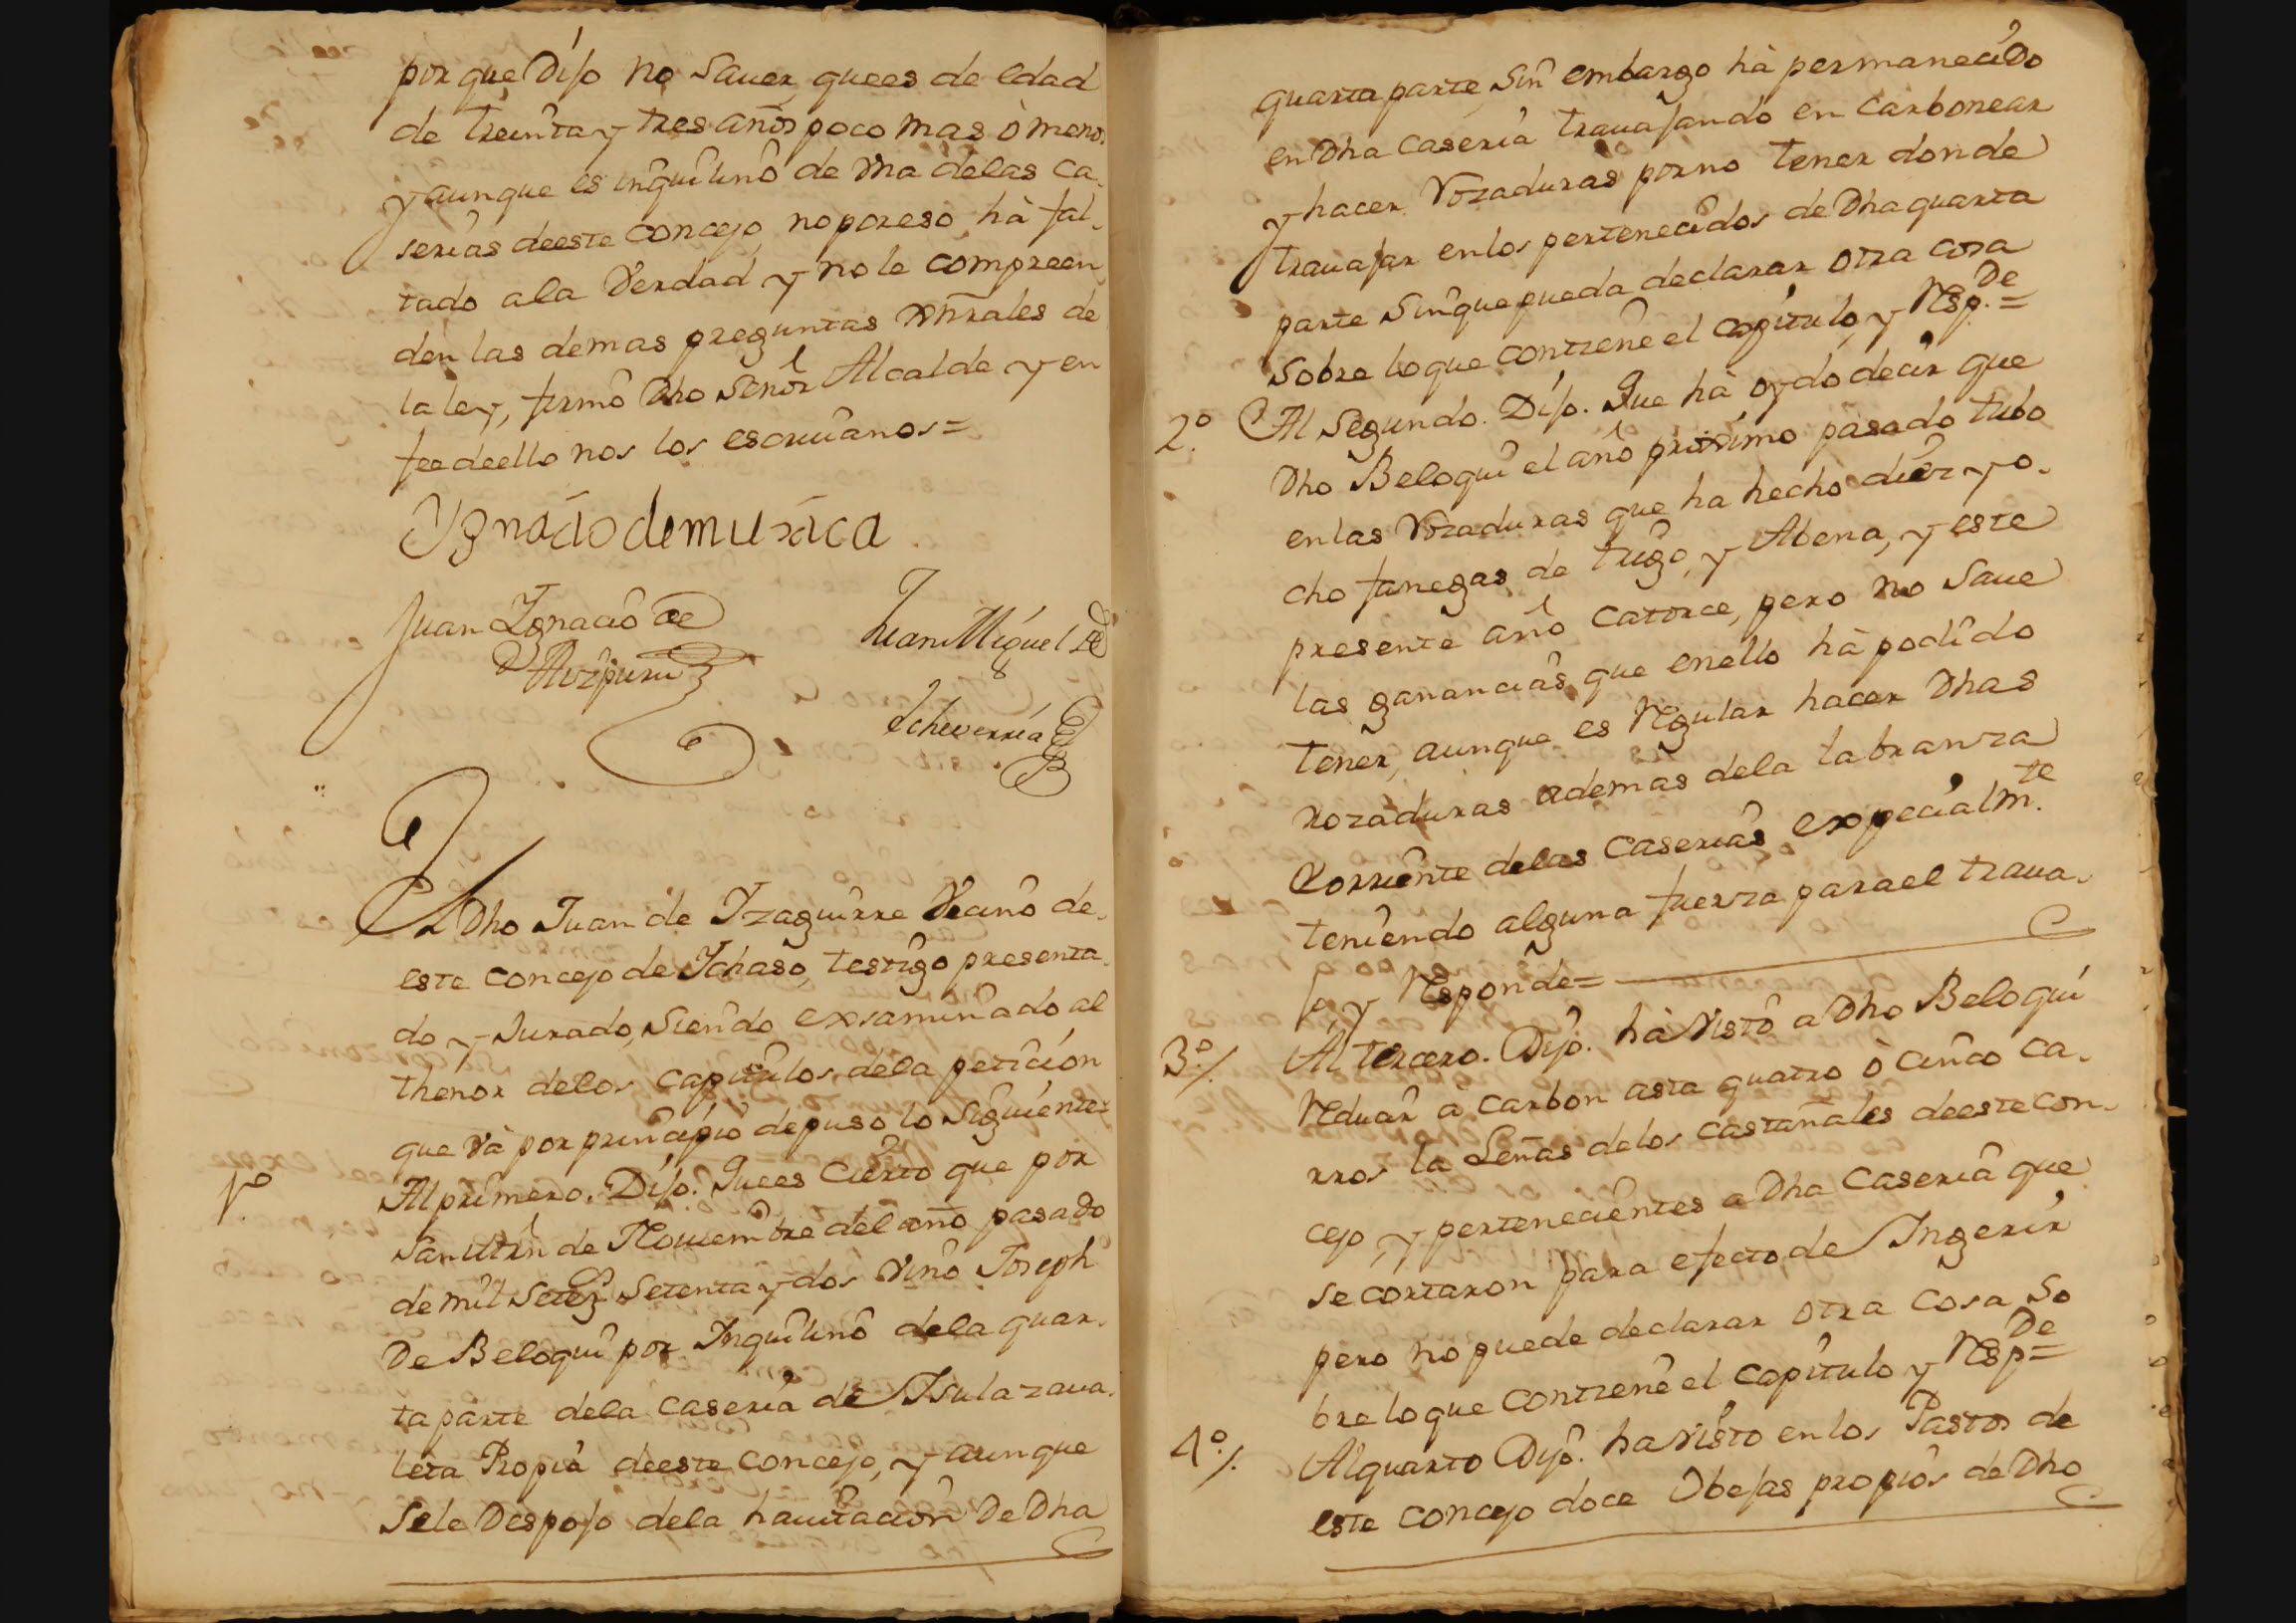 por que Dijo no Saver, quees de edad
de treinta y tres años poco mas ò meno.
y aunque es inquilino de vna delas ca-
serias deeste concejo, no poreso hà fal-
tado ala Verdad y nole compreen
den las demas preguntas xnrales de
la ley, firmò Dho Señor Alcalde y en
fee deello nos los escriuanos=
Ygnacio de muxica
Juan Ignacio de
Juan Miguel de
Aizpuru
Echeverria
El Dho Juan de Yzaguirre Vecino de-
este concejo de Ichaso, testigo presenta-
do y Jurado, Siendo exsaminado al
thenor delos capitulos dela peticion
que và por principio depuso lo Siguiente=
1º
Al primero. Dijo. Quees Cierto que por
San Mrn de Nouiembre del año pasado
de mil Setez.s Setenta y dos vino Joseph
De Beloqui por Inquilino dela quar-
ta parte dela caseria de Isulazaua-
leta Propia deeste concejo, y aunque
Sele Despojo dela hauitacion De Dha
quarta parte, Sin embargo hà permanecido
en Dha caseria trauajando en Carbonear
y hacer Rozaduras por no tener donde
trauajar enlos pertenecidos de Dha quarta
parte Sinque pueda declarar otra cosa
Sobre loque contiene el capitulo, y Resp.De=
2º.
Al Segundo. Dijo. Que hà oydo decir que
Dho Beloqui el año proximo pasado tubo
enlas Rozaduras que ha hecho diez y o-
cho fanegas de trigo, y Abena, y este
presente año catorce, pero no Saue
las ganancias que enello hà podido
tener, aunque es Regular hacer Dhas
rozaduras ademas dela labranza
Corriente delas caserias expecialm.te
teniendo alguna fuerza para el traua-
jo, y Responde=
3º./.
Al tercero. Dijo. hà visto a Dho Beloqui
Reduair a carbon asta quatro ò cinco ca-
rros la Leñas delos castañales deeste con-
cejo, y pertenecientes a Dha Caseria que
se cortaron para efecto de Ingerir
pero no puede declarar otra cosa So
bre loque contiene el capitulo y Resp.De=
4º./.
Al quarto Dijo. ha visto enlos Pastos de
este concejo doce Obejas propios de Dho